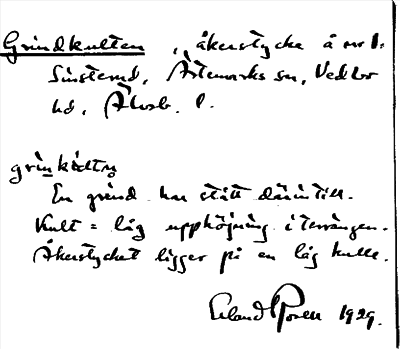 Grindkulten, åkerstycke å nr 1.
Sunsterud, Ärtemarks sn, Vedbo
hd, Älvsb. l.
En grind har stått därintill.
Kult = låg upphöjning i terrängen.
Åkerstycket ligger på en låg kulle.
Erland Rosell 1929.